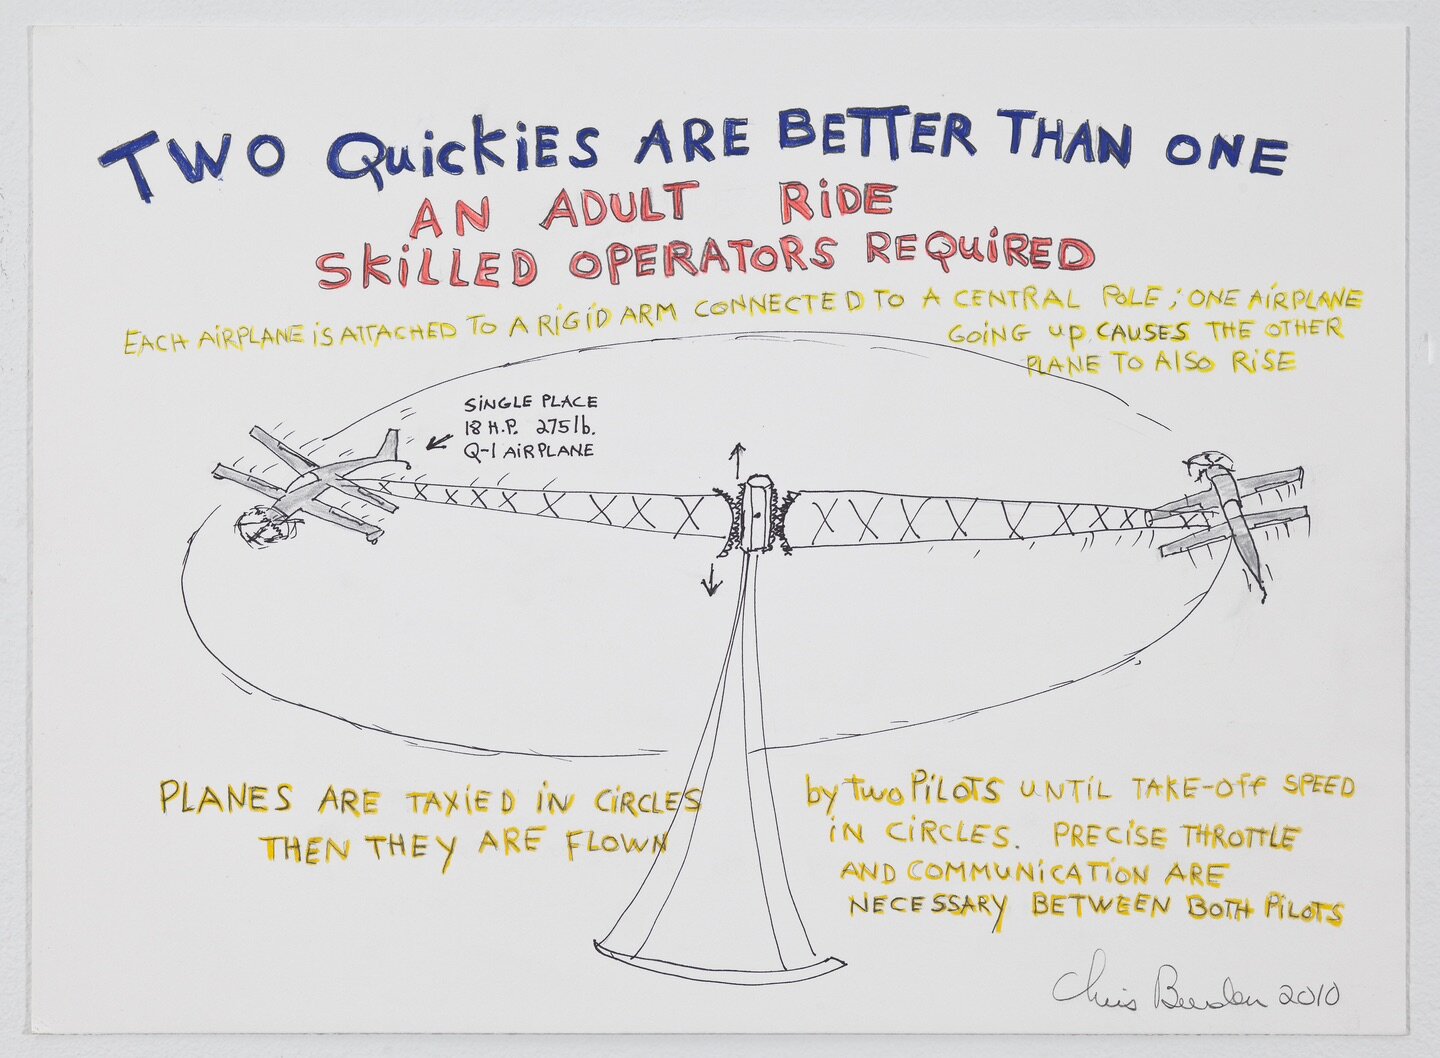 TWO QuickiES ARE BETTER THAN ONE
AN ADULT RiDE
SKiLLED OPERATORS REQUiRED
EACH AiRPLANE iS ATTACHED TO A RiGiD ARM CONNECTED TO A CENTRAL POLE; ONE AiRPLANE
GOiNG UP CAUSES THE OTHER
PLANE TO AlSO RiSE
SiNGLE PLACE
18 H.P. 275 lb.
Q-1 AiRPLANE
PLANES ARE TAXiED iN CiRCLES
THEN THEY ARE FLOWN
by TWO PiLOTS UNTiL TAKE-OFF SPEED
iN CiRCLES. PRECiSE THROTTLE
AND COMMUNiCATiON ARE
NECESSARY BETWEEN BOTH PiLOTS
Chris Burden 2010